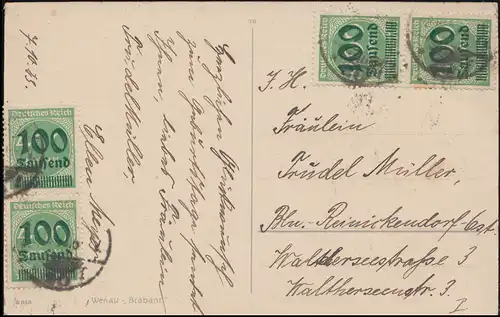 7. 11. 23.
Herzlichen Glückwunsch
zum Geburtstage sendet
Ihnen, liebes Fräulein
Trudel Müller,
Ellen
Deutsches Reich
100
Tausend
Deutsches Reich
100
Tausend
Wenau - Brabant
100
Tausend
100
Tausend
J. H.
Fräulein
Trudel Müller,
Bln.-Reinickendorf-Ost.
Waltherseestraße 3
Waltherseenstr. 3.
I